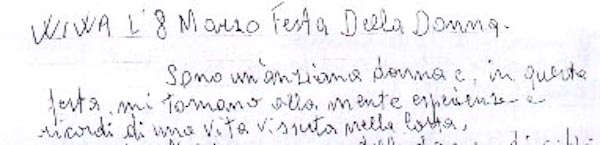 WIWA L'8 Marzo Festa Della Donna.
Sono un'anziana donna e, in questa
festa, mi tornano alla mente esperienze e
ricordi di una vita vissuta nella lotta,